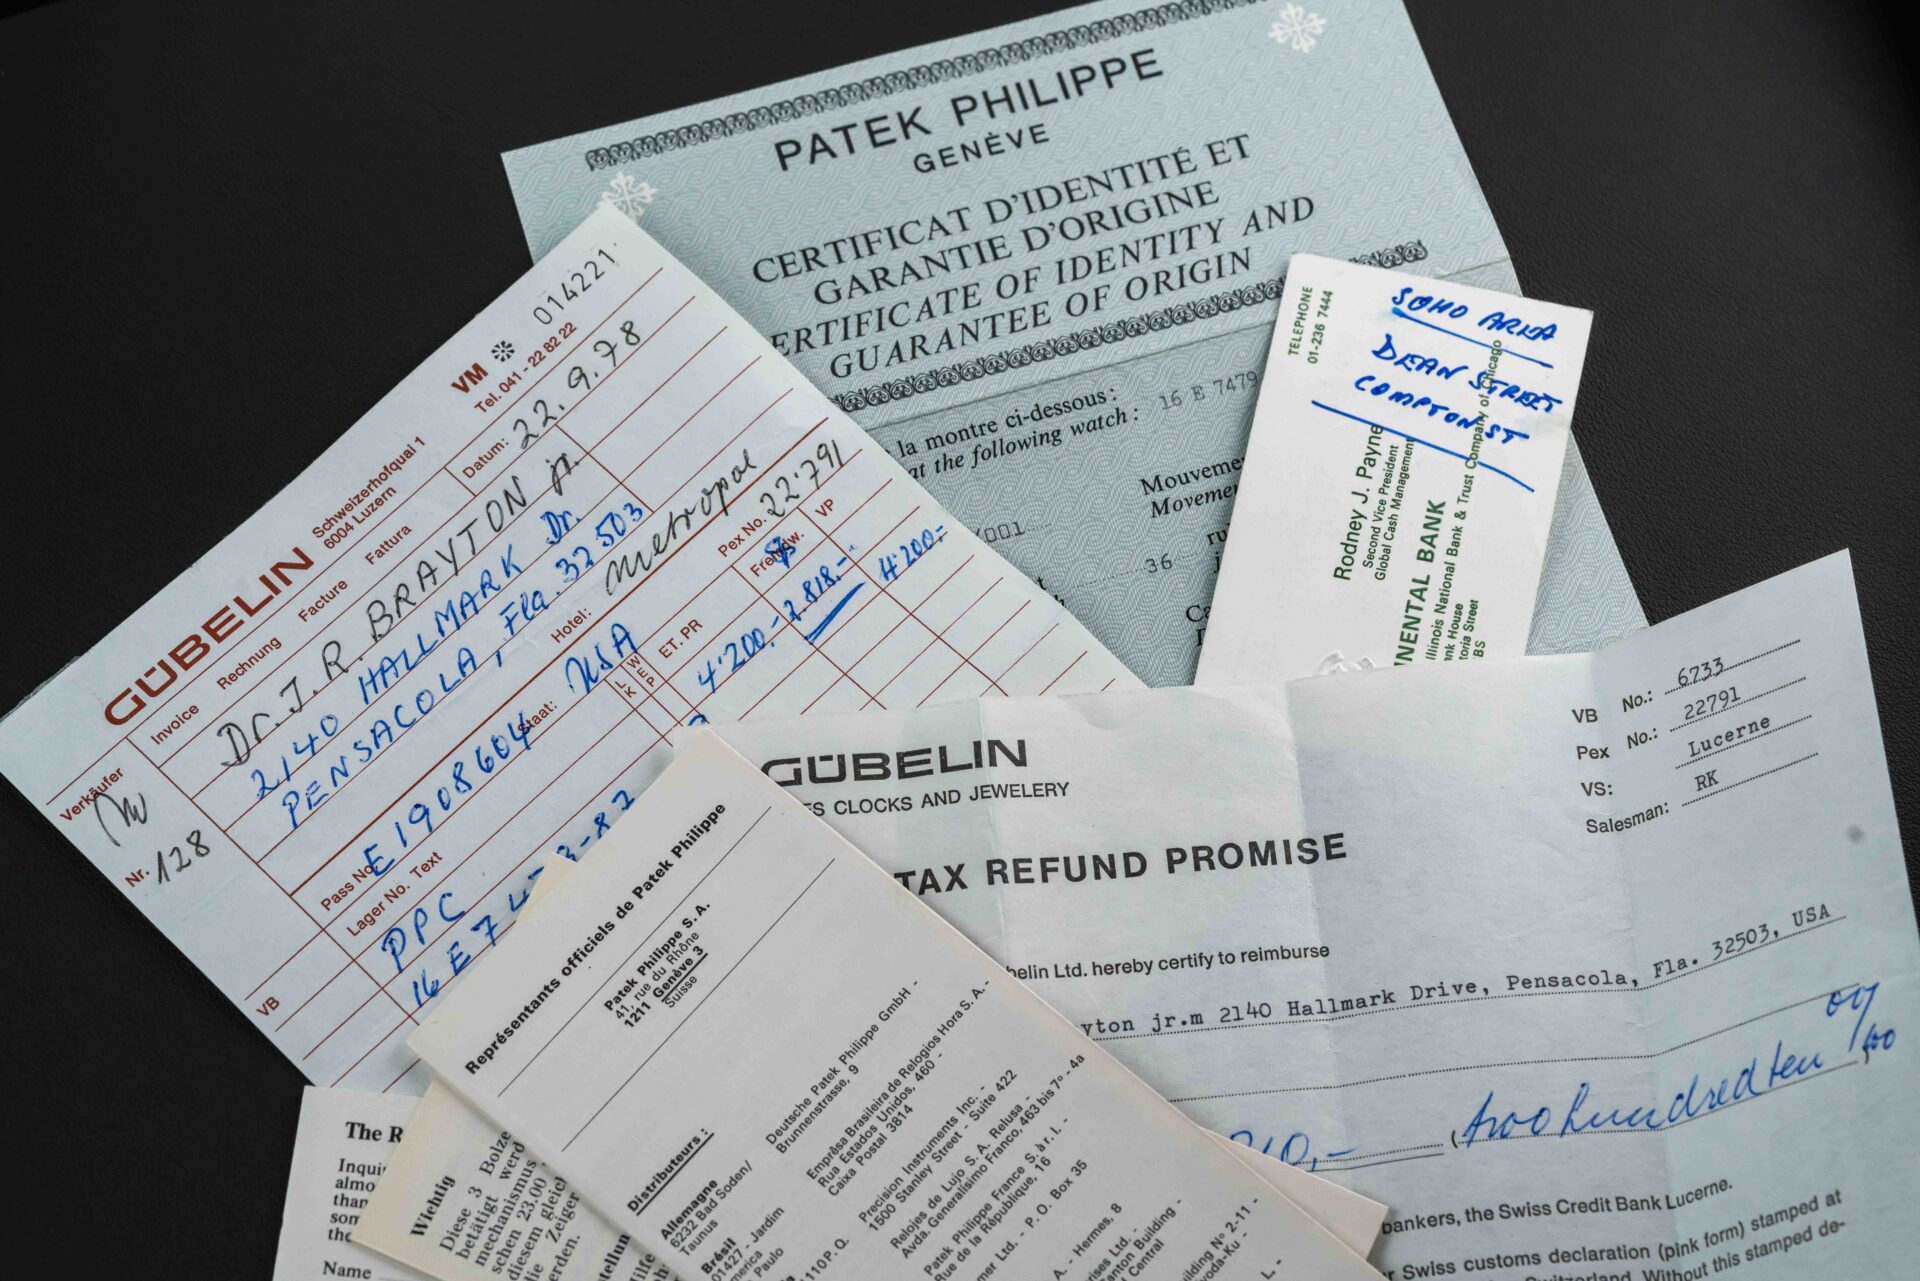 PATEK PHILIPPE
GENÈVE
CERTIFICAT D'IDENTITÉ ET
GARANTIE D'ORIGINE
CERTIFICATE OF IDENTITY AND
GUARANTEE OF ORIGIN
la montre ci-dessous :
at the following watch :
16 E 7479
Mouveme
Movemen
/001
36
ru
TELEPHONE
01-236 7444
SOHO AREA
DEAN STREET
COMPTON ST
Rodney J. Payne
Second Vice President
Global Cash Management
NENTAL BANK
Illinois National Bank & Trust Company of Chicago
nk House
toria Street
BS
GÜBELIN
Schweizerhofquai 1
6004 Luzern
VM
014221
Tel. 041 - 22 82 22
Invoice Rechnung Facture Fattura
Datum: 22.9.78
Dr. J. R. BRAYTON jr.
2140 HALLMARK Dr.
PENSACOLA, Fla. 32503
Verkäufer
Nr. 128
Hotel: Metropol
Pass No. E1908604
Staat: USA
Pex No. 22'791
Lager No. Text
L W
K E P
ET. PR
Fremdw. $
VP
PPC
4'200.-
2.818.-
4'200.-
16 E 7
VB
GÜBELIN
ES CLOCKS AND JEWELERY
VB No.: 6733
Pex No.: 22791
VS: Lucerne
Salesman: RK
TAX REFUND PROMISE
belin Ltd. hereby certify to reimburse
yton jr.m 2140 Hallmark Drive, Pensacola, Fla. 32503, USA
210,- (two hundred ten
bankers, the Swiss Credit Bank Lucerne.
Swiss customs declaration (pink form) stamped at
Switzerland. Without this stamped de-
Représentants officiels de Patek Philippe
Patek Philippe S. A.
41, rue du Rhône
1211 Genève 3
Suisse
Distributeurs :
Allemagne
6232 Bad Soden/
Taunus
Deutsche Patek Philippe GmbH -
Brunnenstrasse, 9
Brésil
01427 - Jardim
merica
Paulo
Emprêsa Brasileira de Relogios Hora S.A. -
Rua Estados Unidos, 460 -
Caixa Postal 3814
1110 P.Q.
Precision Instruments Inc. -
1500 Stanley Street - Suite 422
Relojes de Lujo S. A. Relusa -
Avda. Generalisimo Franco, 463 bis 7º - 4a
Patek Philippe France S. à r. l. -
Rue de la République, 16
mer Ltd. - P. O. Box 35
A. - Hermes, 8
rises Ltd.
anton Building -
Central
uilding Nº 2-11 -
yoda-Ku -
L. -
The R
Inqui
almo
than
som
the
Name
Wichtig
Diese 3 Bolze
betätigt werd
mechanismus
schen 23.00
diesem gleich
ie Zeiger
rden.